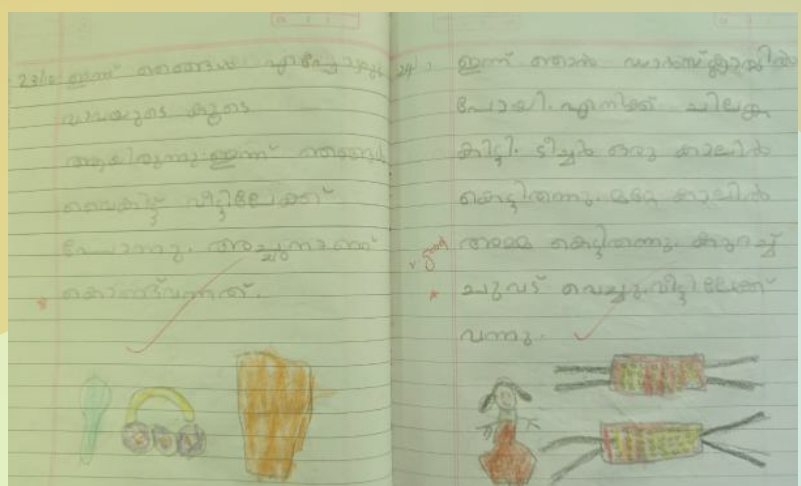 23/10 ഇന്ന് ഞങ്ങൾ എപ്പോഴും
വാവയുടെ കൂടെ
ആയിരുന്നു. ഇന്ന് ഞങ്ങൾ
വൈകിട്ട് വീട്ടിലേക്ക്
പോന്നു. അച്ഛനാണ്
കൊണ്ട് വന്നത്.
24/ ഇന്ന് ഞാൻ ഡാൻസ് ക്ലാസ്സിൽ
പോയി. എനിക്ക് ചിലങ്ക
കിട്ടി. ടീച്ചർ ഒരു കാലിൽ
കെട്ടിതന്നു. മറ്റേ കാലിൽ
v. good അമ്മ കെട്ടിതന്നു. കുറച്ച്
ചുവട് വെച്ചു. വീട്ടിലേക്ക്
വന്നു.